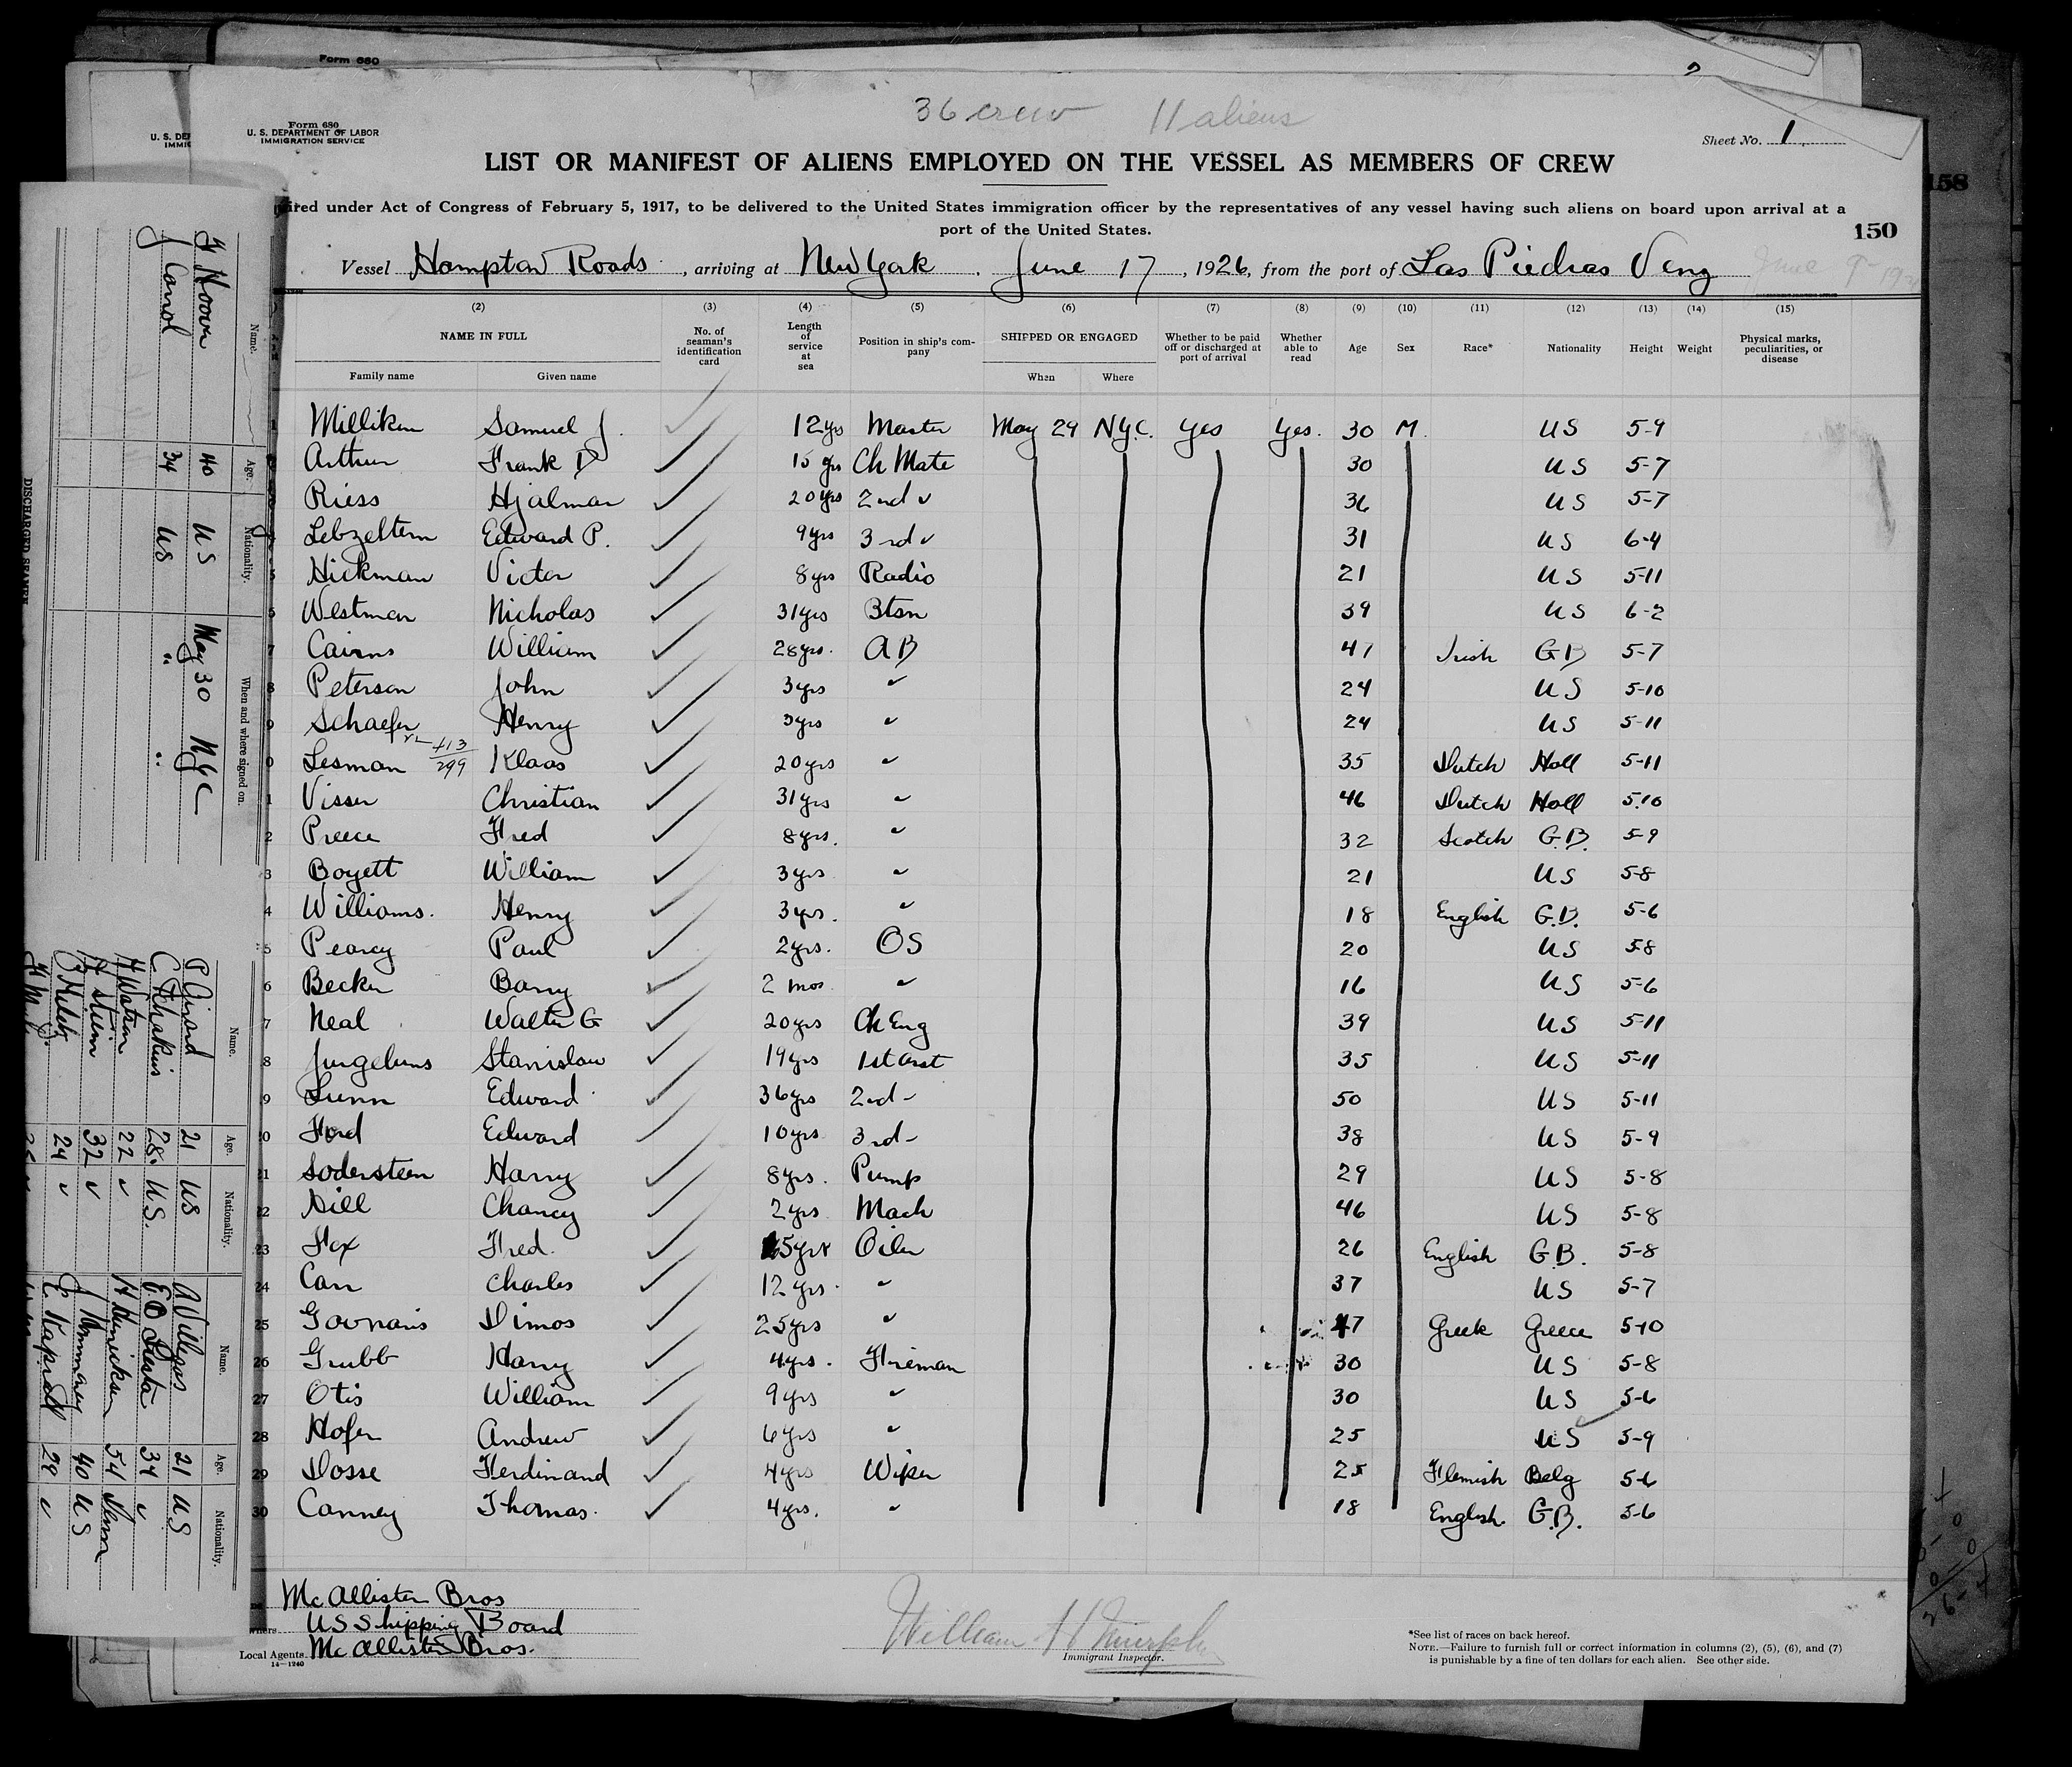 Form 680
36 crew 11 aliens
Form 680
U. S. DEPARTMENT OF LABOR
IMMIGRATION SERVICE
Sheet No. 1
LIST OR MANIFEST OF ALIENS EMPLOYED ON THE VESSEL AS MEMBERS OF CREW
ired under Act of Congress of February 5, 1917, to be delivered to the United States immigration officer by the representatives of any vessel having such aliens on board upon arrival at a
port of the United States.
150
158
Vessel Hampton Roads, arriving at New York, June 17, 1926, from the port of Las Piedras Venz
(2) (3) (4) (5) (6) (7) (8) (9) (10) (11) (12) (13) (14) (15)
NAME IN FULL Family name Given name No. of seaman's identification card Length of service at sea Position in ship's company SHIPPED OR ENGAGED When Where Whether to be paid off or discharged at port of arrival Whether able to read Age Sex Race* Nationality Height Weight Physical marks, peculiarities, or disease
1 Milliken Samuel J. 12yrs Master May 29 NYC. Yes Yes. 30 M. US 5-9
Arthur Frank D 15 yrs Ch Mate 30 US 5-7
Riess Hjalmar 20yrs 2nd " 36 US 5-7
4 Lebzeltern Edward P. 9yrs 3rd " 31 US 6-4
5 Hickman Victor 8yrs Radio 21 US 5-11
6 Westman Nicholas 31yrs Btsn 39 US 6-2
7 Cairns William 28yrs. AB 47 Irish GB 5-7
8 Peterson John 3yrs " 24 US 5-10
9 Schaefer Henry 3yrs " 24 US 5-11
0 Lesman 413/299 Klaas 20yrs " 35 Dutch Holl 5-11
1 Visser Christian 31yrs " 46 Dutch Holl 5-10
2 Preece Fred 8yrs. " 32 Scotch G.B. 5-9
3 Boyett William 3yrs " 21 US 5-8
4 Williams. Henry 3yrs. " 18 English G.B. 5-6
5 Pearcy Paul 2yrs. OS 20 US 5-8
6 Becker Barry 2 mos " 16 US 5-6
7 Neal Walter G 20yrs Ch Eng 39 US 5-11
8 Stanislaw 19yrs 1st Asst 35 US 5-11
9 Lunn Edward 36yrs 2nd " 50 US 5-11
0 Ford Edward 10yrs 3rd " 38 US 5-9
21 Soderstein Harry 8yrs. Pump 29 US 5-8
22 Hill Chancy 2yrs Mach 46 US 5-8
23 Fox Fred. 5yrs Oiler 26 English G.B. 5-8
24 Carr Charles 12yrs. " 37 US 5-7
25 Govnaris Dimos 25yrs " 47 Greek Greece 5-10
26 Grubb Harry 4yrs. Fireman 30 US 5-8
27 Otis William 9yrs " 30 US 5-6
28 Hofer Andrew 6yrs " 25 US 5-9
29 Dosse Ferdinand 4yrs Wiper 25 Flemish Belg 5-6
30 Canney Thomas. 4yrs. " 18 English. G.B. 5-6
McAllister Bros
US Shipping Board
Local Agents. McAllister Bros.
14—1240
William H Murphy
Immigrant Inspector.
*See list of races on back hereof.
NOTE.—Failure to furnish full or correct information in columns (2), (5), (6), and (7)
is punishable by a fine of ten dollars for each alien. See other side.
DISCHARGED SEAMEN
Name. Age. Nationality. When and where signed on.
F Hoover 40 US May 30 NYC
J Carrol 34 US " "
Name. Age. Nationality.
P Girard 21 US
C 28. U.S.
H Watson 22 "
H Stein 32 "
24 "
Name. Age. Nationality.
A Villegas 21 US
34 "
H Hendrickson 54
J 40 US
29 "